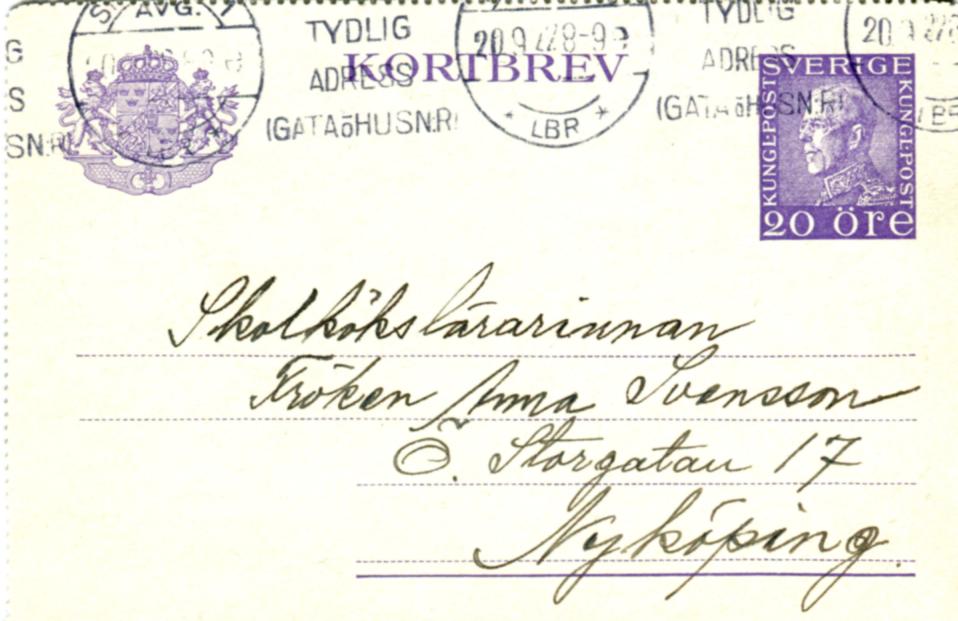 AVG. 1
TYDLIG
ADRESS
(GATAÖHUSN:R)
20.9.27.8-9
LBR
TYDLIG
ADRESS
(GATAÖHUSN:R)
20.9
LBR
G
S
SN:R)
KORTBREV
SVERIGE
KUNGL·POST
KUNGL·POST
20 öre
Skolkökslärarinnan
Fröken Anna Svensson
Ö. Storgatan 17
Nyköping.